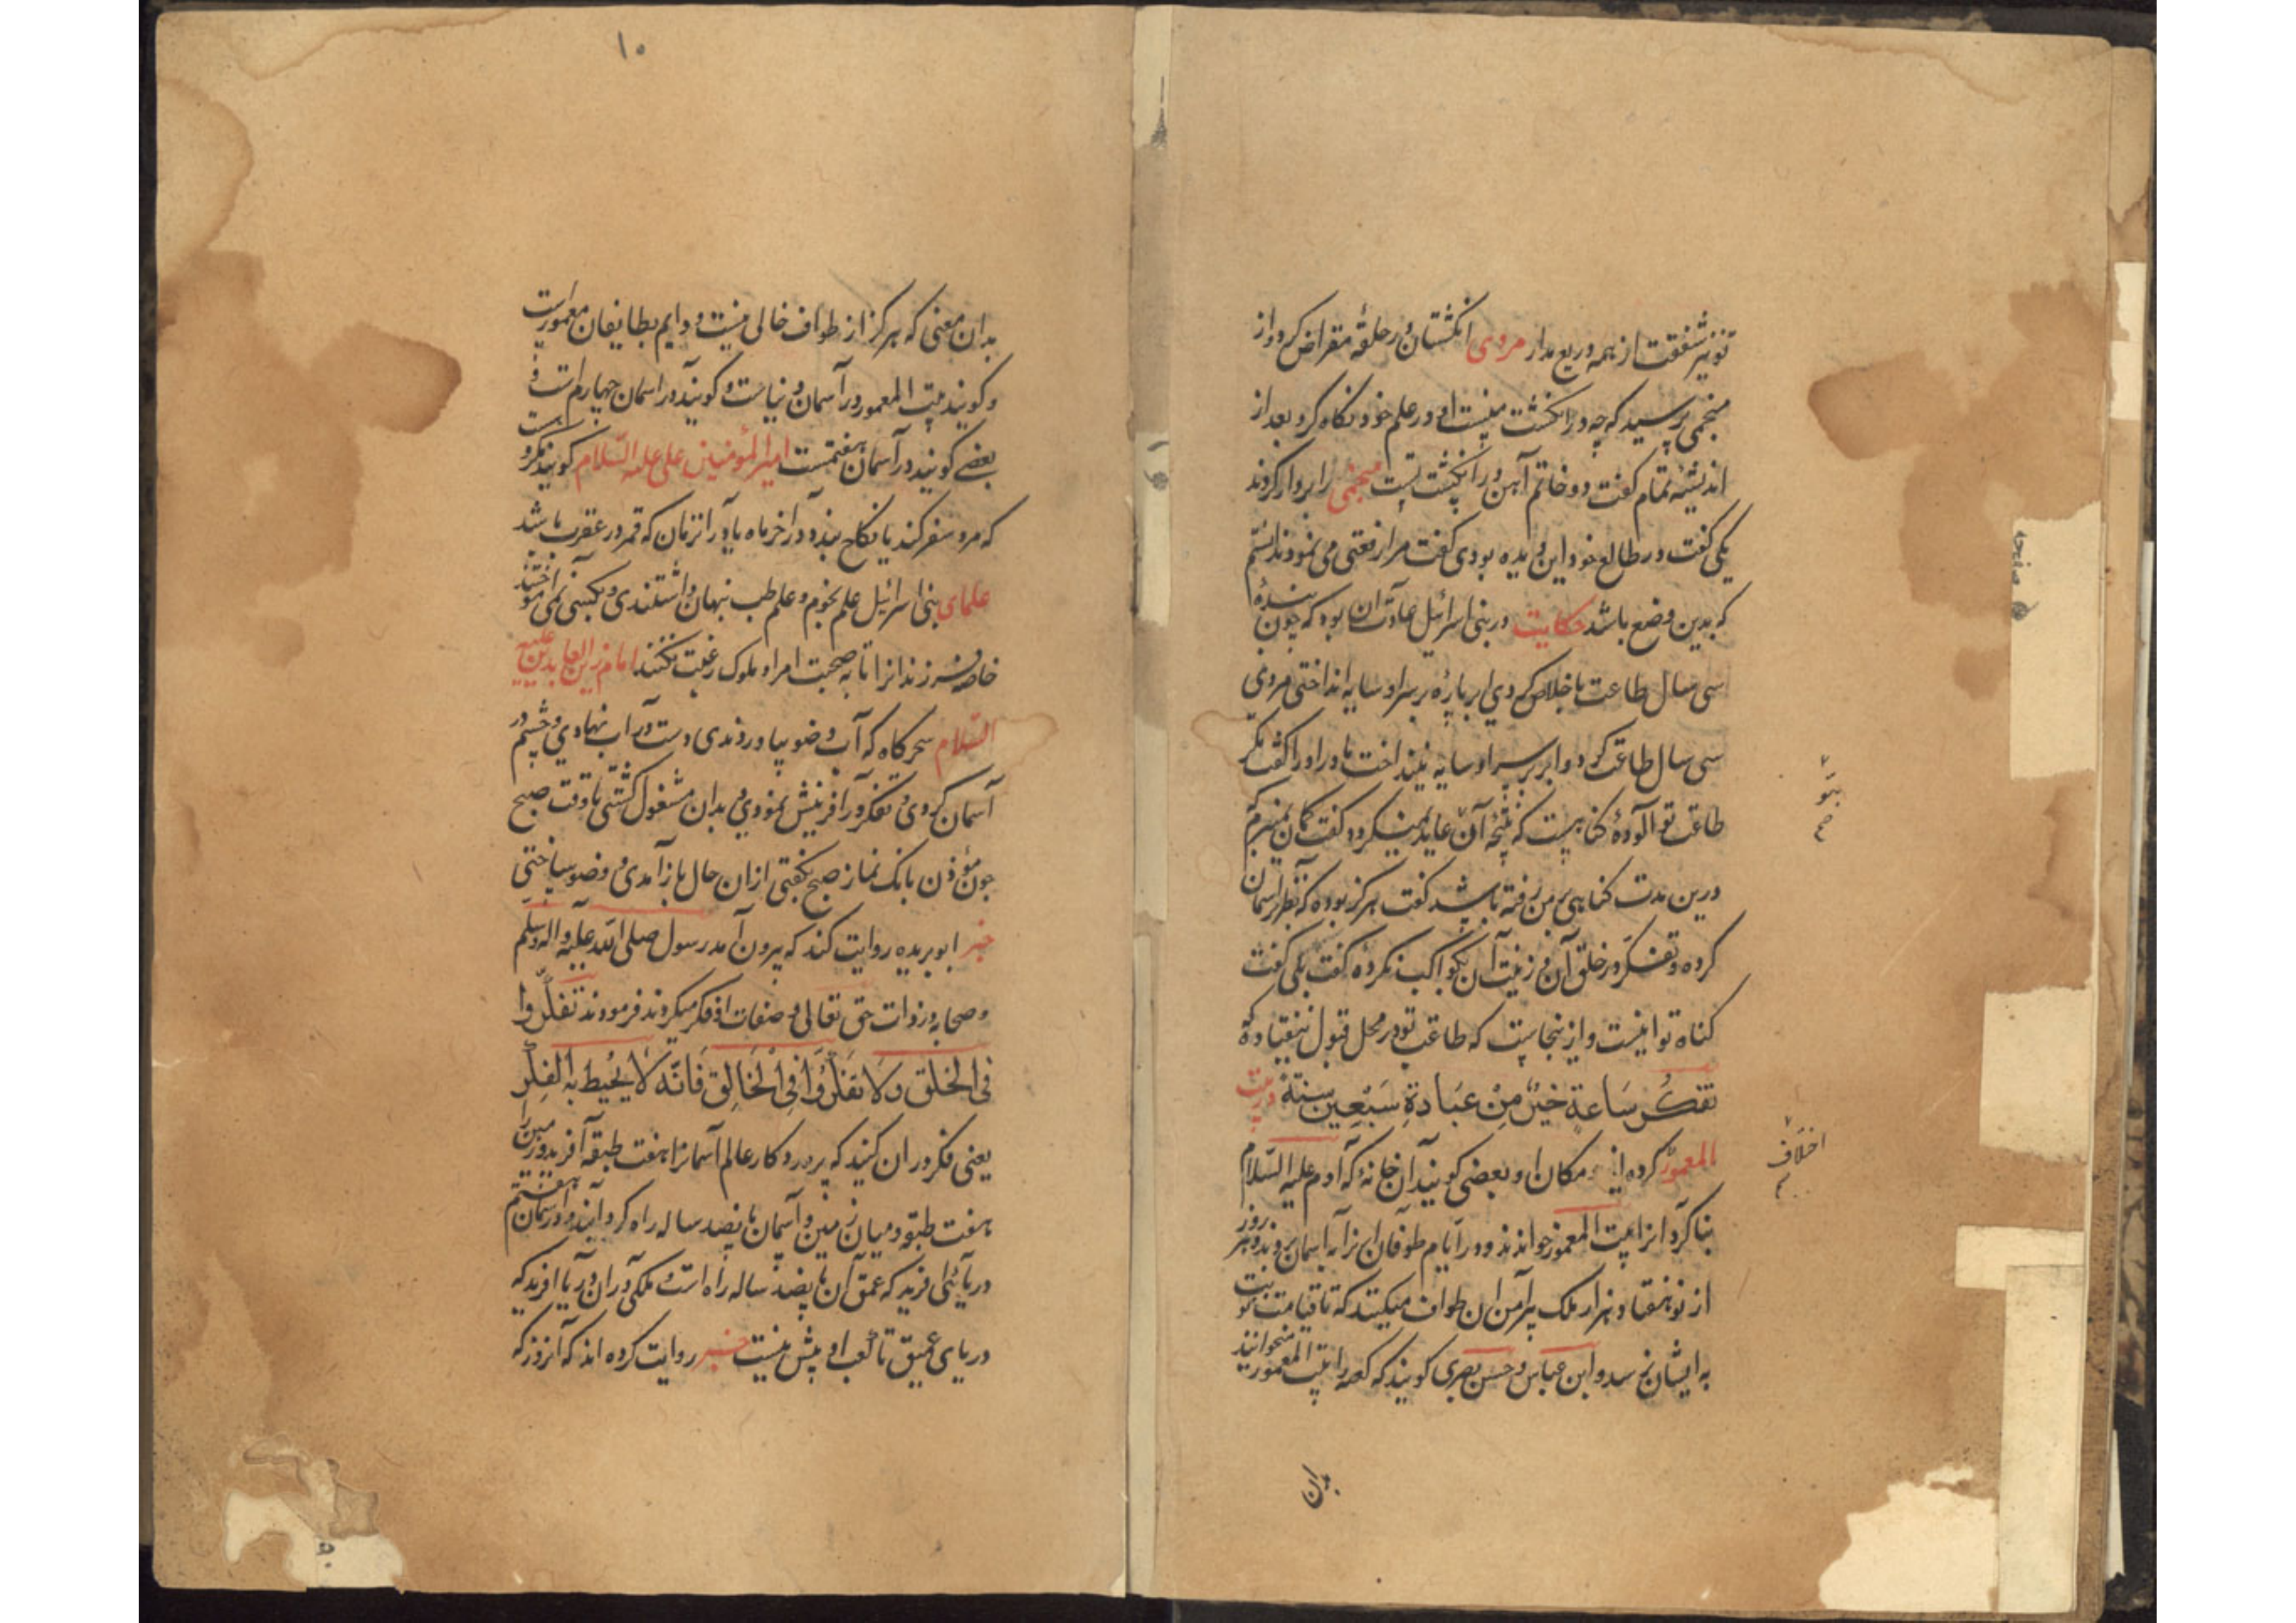 تو نیز شفقت از همه دریغ مدار مردی انکشتان در حلقهٔ مقراض کرد و از
منجمی پرسید که چه در انکشت منست او در علم خود نکاه کرد بعد از
اندیشهٔ تمام کفت دو خاتم آهن در انکشت تست منجمی را بر دار کردند
یکی کفت در طالع خود این دیده بودی کفت مرا رفعتی می نمود ندانستم
که بدین وضع باشد حکایت در بنی اسرائیل عادت آن بود که چون بندهٔ
سی سال طاعت باخلاص کردی ابر پارهٔ بر سر او سایه انداختی مردی
سی سال طاعت کرد و ابر بر سر او سایه نینداخت مادر او را کفت مکر
طاعت تو آلودهٔ کناهیست که نتیجهٔ آن عاید نمیکردد کفت کمان نمیبرم که
درین مدت کناهی بر من رفته باشد کفت هرکز بوده که نظر بر آسمان
کرده و تفکر در خلق آن و زینت آن بکواکب نکرده کفت بلی کفت
کناه تو اینست و ازینجاست که طاعت تو در محل قبول نیفتاده که
تفکر ساعة خیر من عبادة سبعین سنة در بیت
المعمور کرده اند مکان او بعضی کویند آن خانه که آدم علیه السلام
بنا کرد آنرا بیت المعمور خوانند و در ایام طوفان آنرا به آسمان بردند و هر روز
از نو هفتاد هزار ملک پیرامن آن طواف میکنند که تا قیامت نوبت
به ایشان نرسد و ابن عباس و حسن بصری کویند که کعبه را بیت المعمور میخوانند
اختلاف
بدان
۱۰
بدان معنی که هرکز از طواف خالی نیست و دایم بطایفان معمورست
و کویند بیت المعمور در آسمان دنیاست و کویند در اسمان چهارم است و
بعضی کویند در آسمان هفتمست امیر المؤمنین علی علیه السلام کویند مکروهست
که مرد سفر کند یا نکاح بندد در آخر ماه یا در انزمان که قمر در عقرب باشد
علمای بنی اسرائیل علم نجوم و علم طب پنهان داشتندی و بکسی نمی آموختند
خاصه فرزندانرا تا به صحبت امرا و ملوک رغبت نکنند امام زین العابدین علیه
السلام سحرکاه که آب وضو بیاوردندی دست در آب نهادی و چشم در
آسمان کردی و تفکر در آفرینش نمودی و بدان مشغول کشتی تا وقت صبح
چون مؤذن بانک نماز صبح بکفتی ازان حال باز آمدی و وضو ساختی
خبر ابو بریده روایت کند که بیرون آمد رسول صلی الله علیه واله وسلم
و صحابه در ذات حق تعالی و صفات او فکر میکردند فرمودند تفکروا
فی الخلق ولا تفکروا فی الخالق فانه لا یحیط به الفکر
یعنی فکر در ان کنید که پروردکار عالم آسمانرا هفت طبقه آفرید و زمین را
هفت طبقه و میان زمین و آسمان پانصد ساله راه کردانید و در آسمان هفتم
دریائی افرید که عمق آن پانصد ساله راه است و ملکی در ان دریا افرید که
دریای عمیق تا کعب او بیش نیست خبر روایت کرده اند که آنروز که